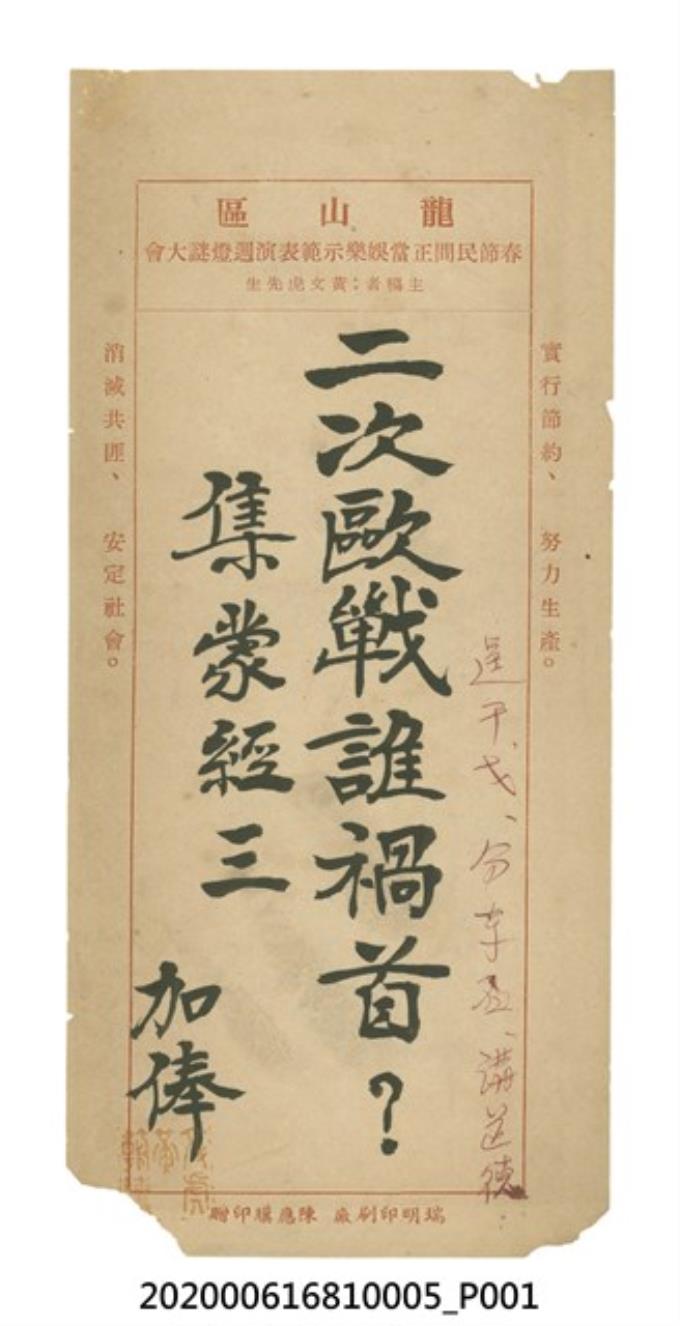 龍山區
春節民間正當娛樂示範表演週燈謎大會
主稿者：黃文虎先生
實行節約、 努力生產。
逞干戈、分李五、講道德
二次歐戰誰禍首？
集蒙經三
加俸
消滅共匪、 安定社會。
瑞明印刷廠 陳應璜印贈
202000616810005_P001